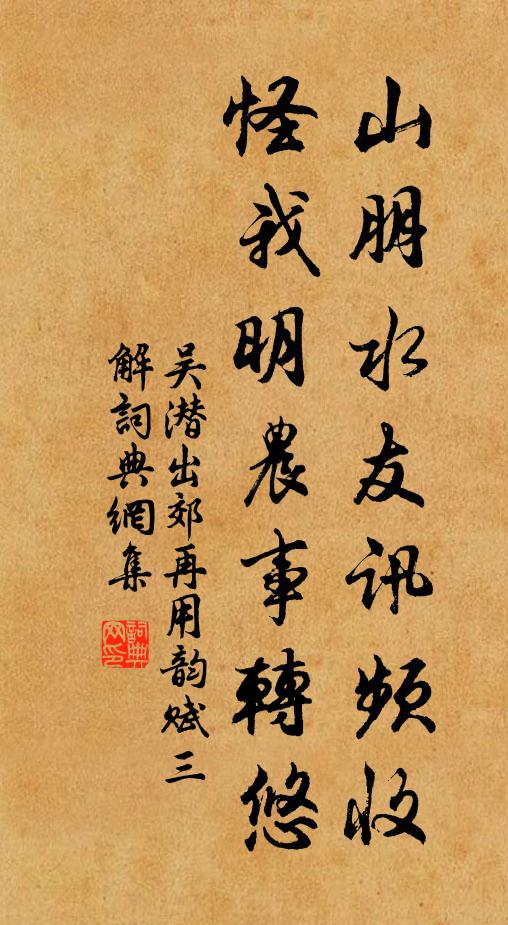 山朋水友讯頻收
怪我明農事轉悠
吴潜出郊再用韵赋三
解詞典網集
詞典网印